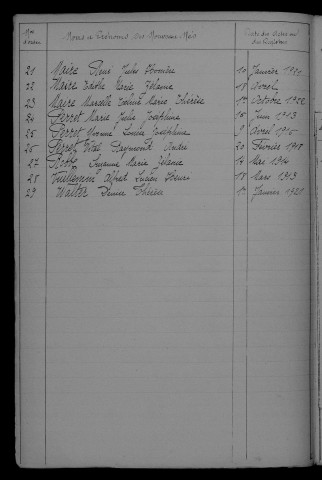 Nos d'ordre Noms et Prénoms des Nouveaux-Nés Date des Actes sur les Registres
21 Maire Jules 10 Janvier 1921
22 Maire Marie Jéhanne 18 Avril
23 Maire Marcelle Marie Thérèse 1er Octobre 1922
24 Perret Marie Julie Joséphine 15 Juin 1913
25 Perret Yvonne Lucie Joséphine Avril 1915
26 Perret Vital Raymond André 20 Février 1918
27 Suzanne Marie Jéhanne 14 Mai 1914
28 Vuillemin Alfred Lucien Henri 18 Mars 1913
29 Denise Thérèse 1er Janvier 1921